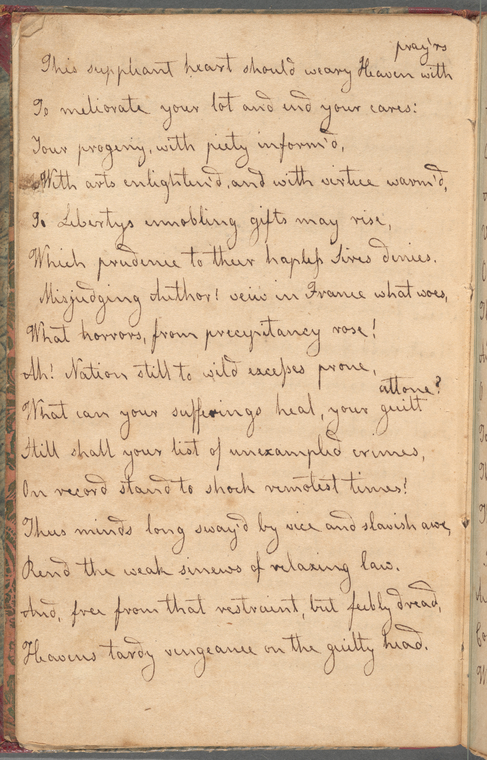 pray'rs
This suppliant heart should weary Heaven with
To meliorate your lot and end your cares:
Your progeny, with piety inform'd,
With arts enlighten'd, and with virtue warm'd,
To Libertys ennobling gifts may rise,
Which prudence to their hapless Sires denies.
Misjudging Author! veiw in France what woes,
What horrors, from precipitancy rose!
Ah! Nation still to wild excesses prone,
attone?
What can your sufferings heal, your guilt
Still shall your list of unexampled crimes,
On record stand to shock remotest times!
Thus minds long sway'd by vice and slavish awe,
Rend the weak sinews of relaxing law.
And, free from that restraint, but feebly dread,
Heavens tardy vengeance on the guilty head.